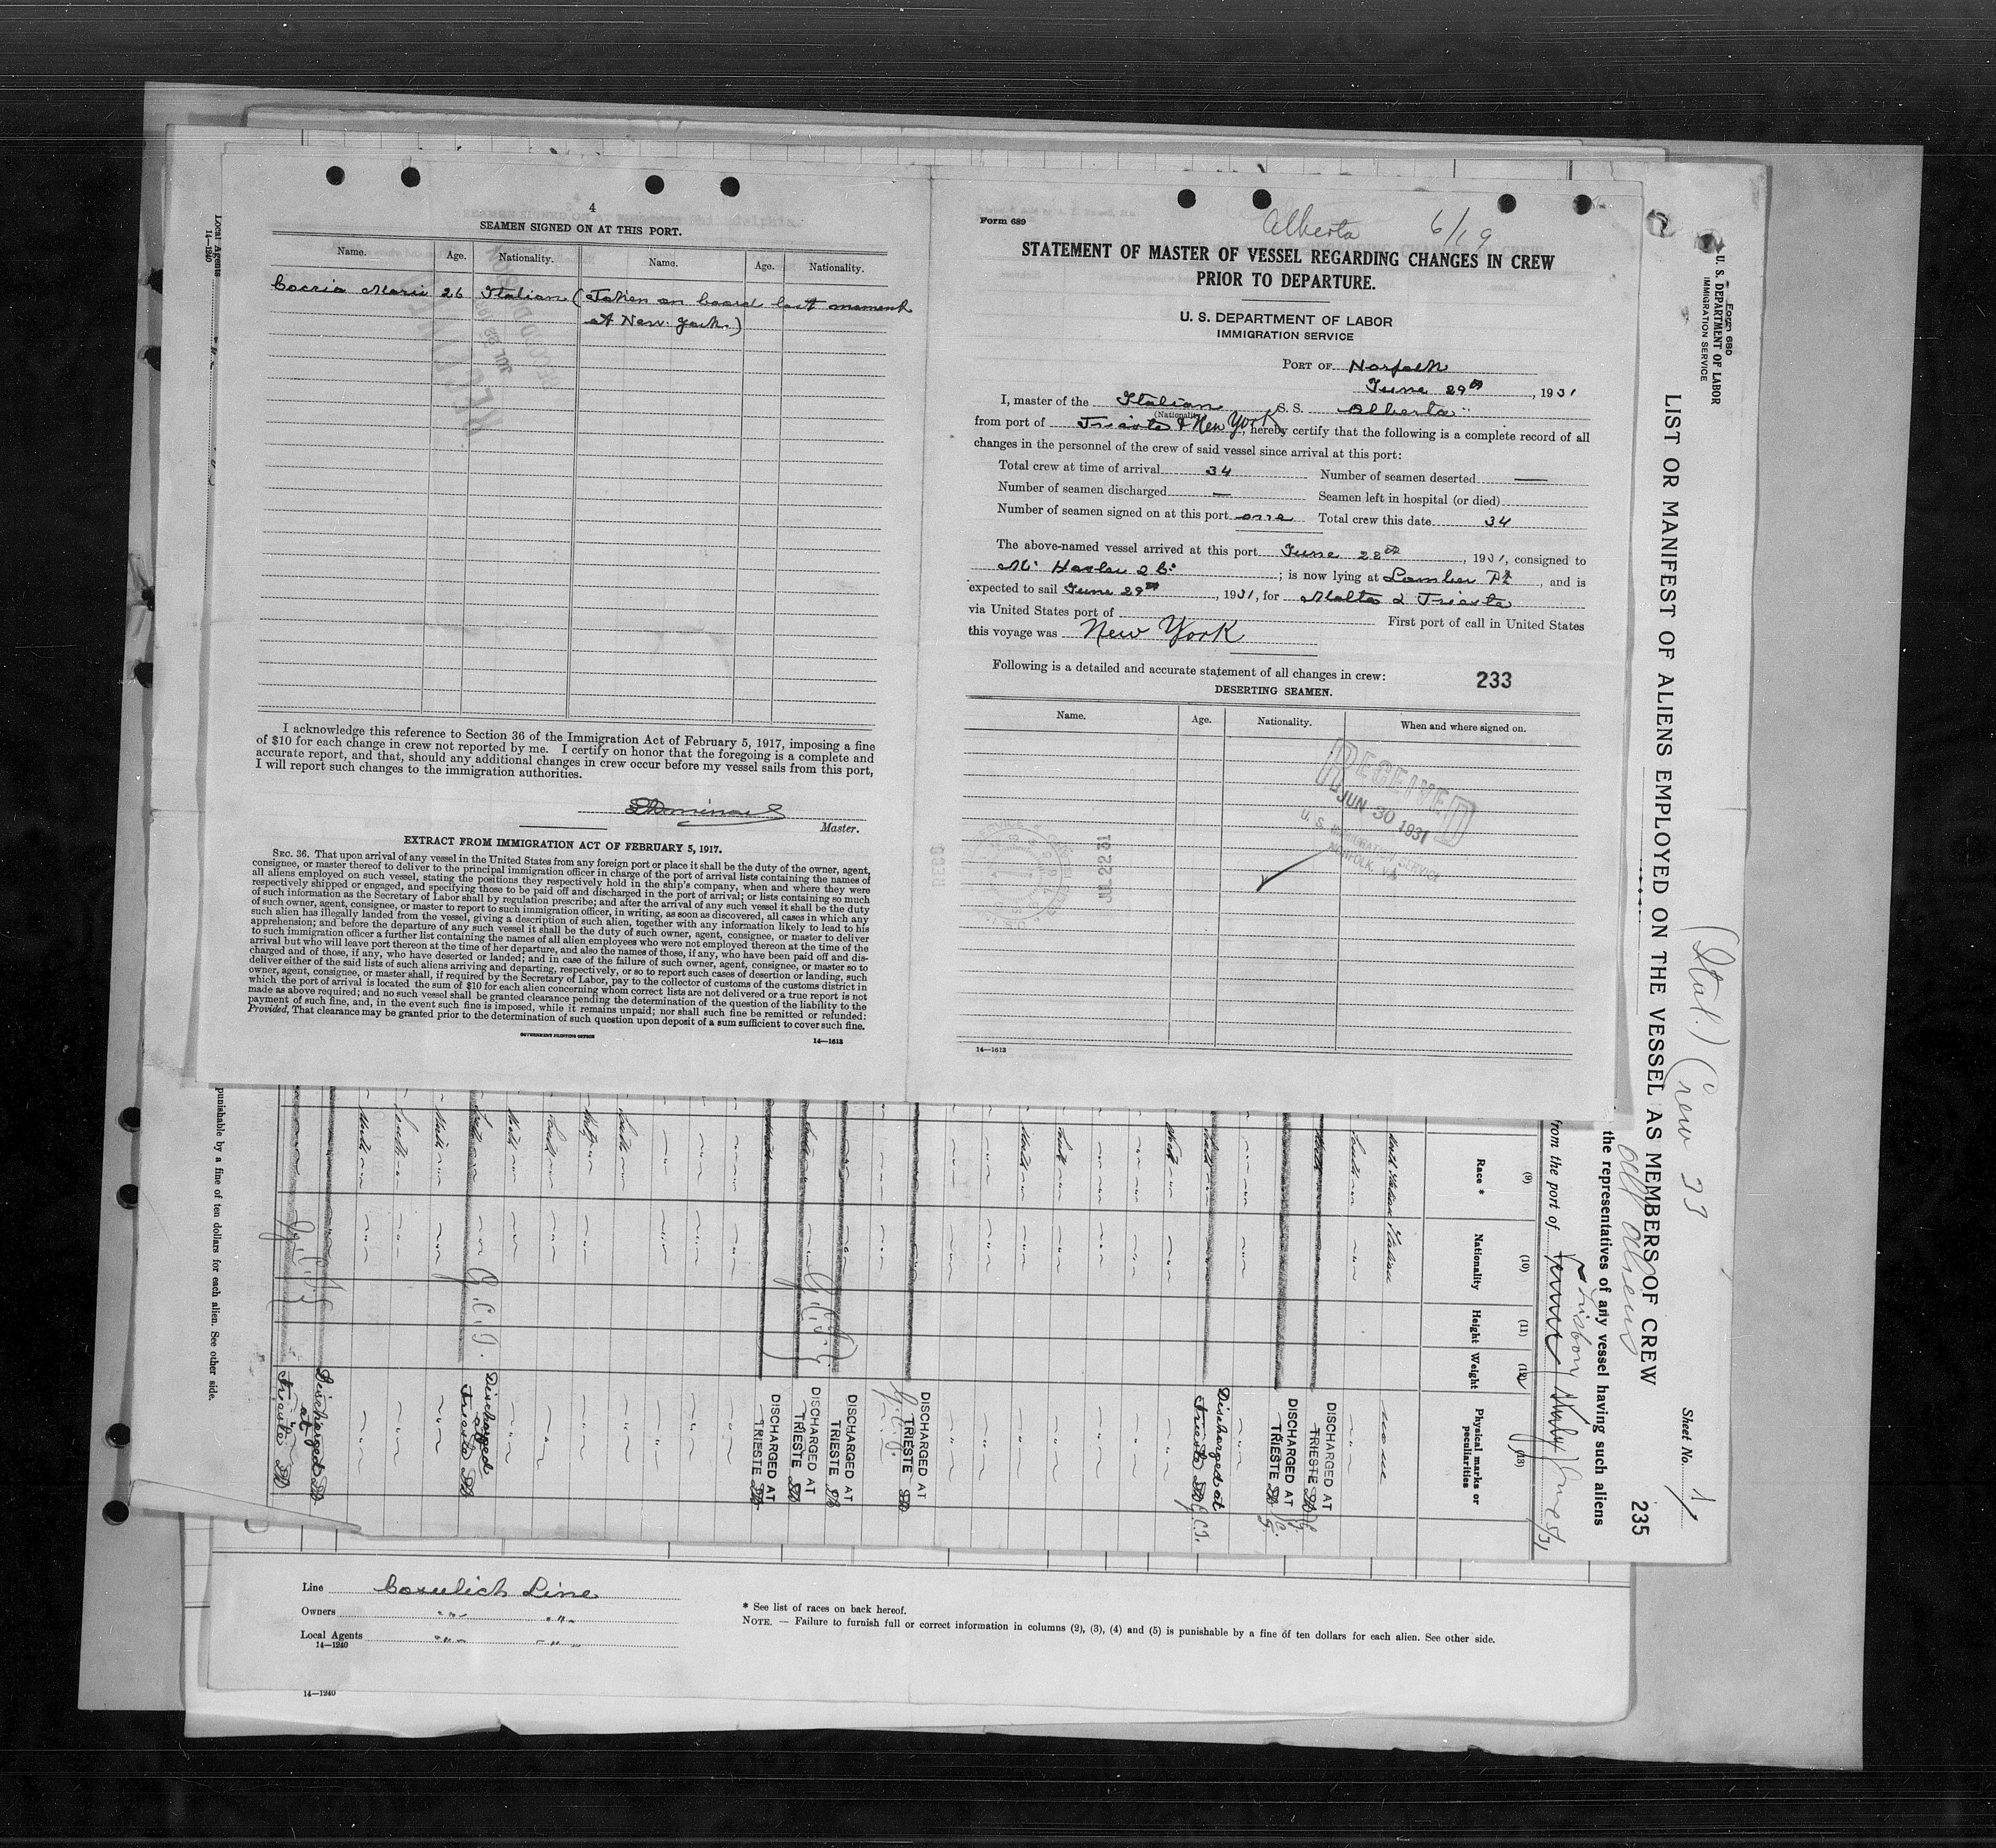 4
SEAMEN SIGNED ON AT THIS PORT.
Name. Age. Nationality. Name. Age. Nationality.
Coccia Mario 26 Italian (Taken on board last moment
at New York.)
I acknowledge this reference to Section 36 of the Immigration Act of February 5, 1917, imposing a fine
of $10 for each change in crew not reported by me. I certify on honor that the foregoing is a complete and
accurate report, and that, should any additional changes in crew occur before my vessel sails from this port,
I will report such changes to the immigration authorities.
Master.
EXTRACT FROM IMMIGRATION ACT OF FEBRUARY 5, 1917.
SEC. 36. That upon arrival of any vessel in the United States from any foreign port or place it shall be the duty of the owner, agent,
consignee, or master thereof to deliver to the principal immigration officer in charge of the port of arrival lists containing the names of
all aliens employed on such vessel, stating the positions they respectively hold in the ship's company, when and where they were
respectively shipped or engaged, and specifying those to be paid off and discharged in the port of arrival; or lists containing so much
of such information as the Secretary of Labor shall by regulation prescribe; and after the arrival of any such vessel it shall be the duty
of such owner, agent, consignee, or master to report to such immigration officer, in writing, as soon as discovered, all cases in which any
such alien has illegally landed from the vessel, giving a description of such alien, together with any information likely to lead to his
apprehension; and before the departure of any such vessel it shall be the duty of such owner, agent, consignee, or master to deliver
to such immigration officer a further list containing the names of all alien employees who were not employed thereon at the time of the
arrival but who will leave port thereon at the time of her departure, and also the names of those, if any, who have been paid off and dis-
charged and of those, if any, who have deserted or landed; and in case of the failure of such owner, agent, consignee, or master so to
deliver either of the said lists of such aliens arriving and departing, respectively, or so to report such cases of desertion or landing, such
owner, agent, consignee, or master shall, if required by the Secretary of Labor, pay to the collector of customs of the customs district in
which the port of arrival is located the sum of $10 for each alien concerning whom correct lists are not delivered or a true report is not
made as above required; and no such vessel shall be granted clearance pending the determination of the question of the liability to the
payment of such fine, and, in the event such fine is imposed, while it remains unpaid; nor shall such fine be remitted or refunded:
Provided, That clearance may be granted prior to the determination of such question upon deposit of a sum sufficient to cover such fine.
GOVERNMENT PRINTING OFFICE
14—1613
Form 689
Alberta 6/19
STATEMENT OF MASTER OF VESSEL REGARDING CHANGES IN CREW
PRIOR TO DEPARTURE.
U. S. DEPARTMENT OF LABOR
IMMIGRATION SERVICE
PORT OF Norfolk
June 29th, 1931
I, master of the Italian S. S. Alberta
(Nationality)
from port of Trieste & New York, hereby certify that the following is a complete record of all
changes in the personnel of the crew of said vessel since arrival at this port:
Total crew at time of arrival 34 Number of seamen deserted —
Number of seamen discharged — Seamen left in hospital (or died)
Number of seamen signed on at this port one Total crew this date 34
The above-named vessel arrived at this port June 28th, 1931, consigned to
; is now lying at Lamber Pt, and is
expected to sail June 29th, 1931, for Malta & Trieste
via United States port of First port of call in United States
this voyage was New York
Following is a detailed and accurate statement of all changes in crew:
233
DESERTING SEAMEN.
Name. Age. Nationality. When and where signed on.
RECEIVED
JUN 30 1931
U. S. IMMIGRATION SERVICE
NORFOLK, VA
JUL 22 31
14—1613
Form 680
U. S. DEPARTMENT OF LABOR
IMMIGRATION SERVICE
LIST OR MANIFEST OF ALIENS EMPLOYED ON THE VESSEL AS MEMBERS OF CREW
(Ital.) (Crew 33
all aliens
Sheet No. 1
235
the representatives of any vessel having such aliens
from the port of Lisbon
(9) (10) (11) (12) (13)
Race * Nationality Height Weight Physical marks or peculiarities
none
DISCHARGED AT
TRIESTE
DISCHARGED AT
TRIESTE
Discharged at
Trieste
DISCHARGED AT
TRIESTE
DISCHARGED AT
TRIESTE
DISCHARGED AT
TRIESTE
DISCHARGED AT
TRIESTE
Discharged
at
Trieste
Discharged
at
Trieste
Local Agents
14—1240
punishable by a fine of ten dollars for each alien. See other side.
Line Cosulich Line
Owners -"- -"-
Local Agents -"- -"-
14—1240
* See list of races on back hereof.
NOTE. — Failure to furnish full or correct information in columns (2), (3), (4) and (5) is punishable by a fine of ten dollars for each alien. See other side.
14—1240